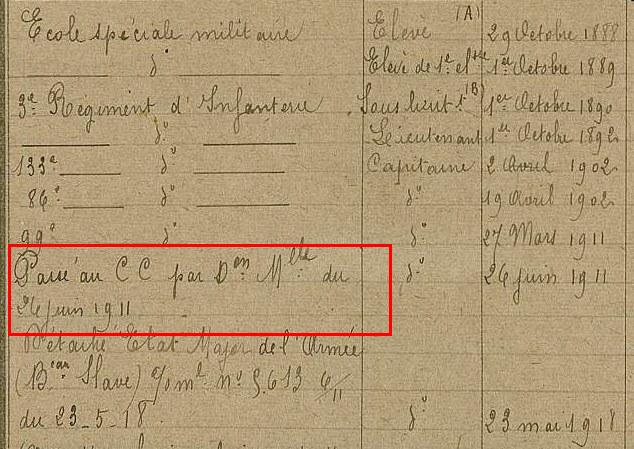 (A)
Ecole spéciale militaire Elève 29 Octobre 1888
d° Elève de 1ère cl 1er Octobre 1889
(B)
3e Régiment d'Infanterie Sous lieut t 1er Octobre 1890
d° Lieutenant 1er Octobre 1892
133e d° Capitaine 2 Avril 1902
86e d° d° 19 Avril 1902
99e d° d° 27 Mars 1911
Passé au CC par Don Mlle du d° 26 juin 1911
26 juin 1911
Détaché Etat Major de l'Armée
(Beau Slave) O/m l n° 9.613 6/11
du 23-5-18. d° 23 mai 1918